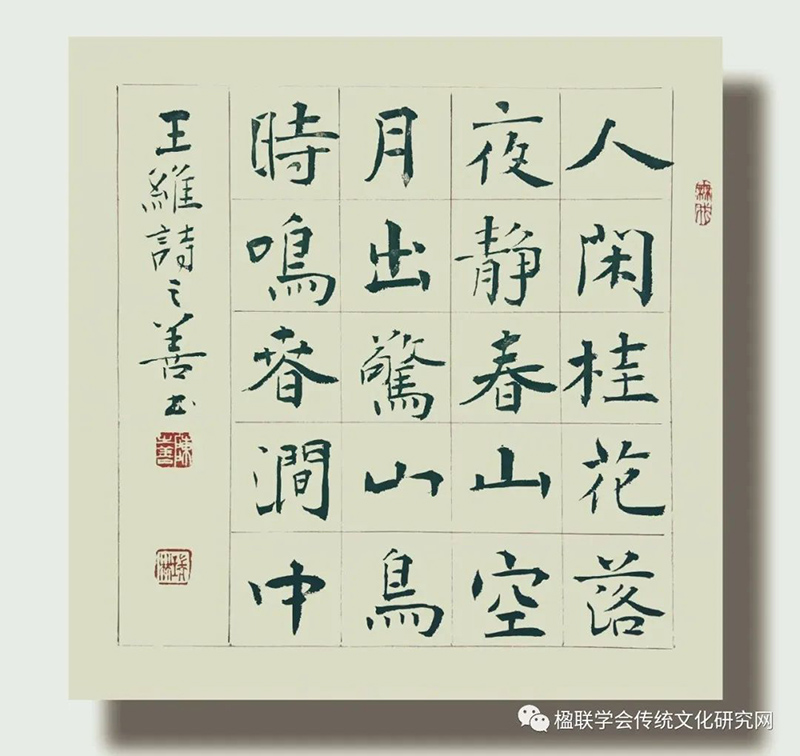 人閑桂花落
夜静春山空
月出驚山鳥
時鳴春澗中
王維詩之善書
陳之善
楹联学会传统文化研究网